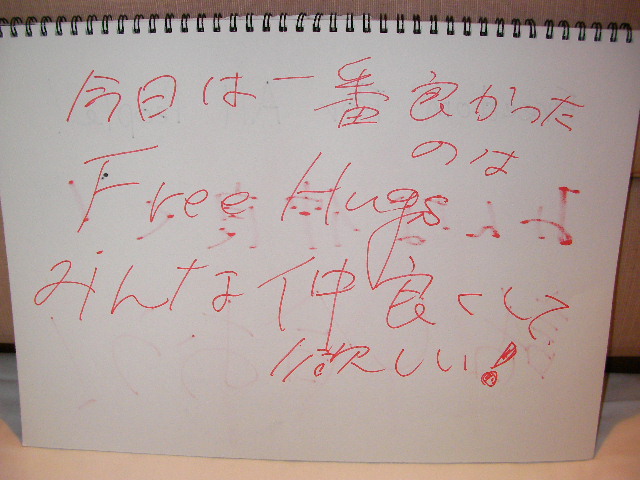 今日は一番良かった
のは
Free Hugs
みんな仲良くして
欲しい!